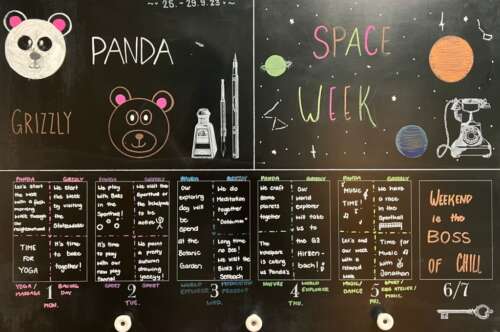 ~ 25.-29.9.23 ~
PANDA
GRIZZLY
SPACE
WEEK
PANDA
Let's start
the week
with a fresh
morning
walk through
our neighborhood
TIME
FOR
YOGA
GRIZZLY
We start
the week
by visiting
the
It's time
to bake
together!
YOGA/
MASSAGE
BAKING
DAY
1
MON.
PANDA
We play
with balls
in the
Sporthall!
It's time to
play with
our new
play
GRIZZLY
We visit the
We paint
a pretty
autumn
together!
SPORT/
GAMES
ART
2
TUE.
PANDA
Our
exploring
day will
be
spend
at the
Botanic
Garden
GRIZZLY
We do
Meditation
together
Long time
no see!
We visit the
Birds in
WORLD
EXPLORER
MEDITATION
3
WED.
PANDA
We craft
some
planets
together
The
explorers
is calling
Panda's
GRIZZLY
Our
world
explorer
will take
us to
the G3
bach!
NATURE
WORLD
EXPLORER
4
THU.
PANDA
MUSIC
TIME!
Let's end
our week
with a
relaxed
walk
GRIZZLY
We have
a race
in the
Sporthall
Time for
Music
with
Jonathan
MUSIC/
DANCE
SPORT/
MUSIC
5
FRI.
WEEKEND
is the
BOSS
OF CHILL
6/7